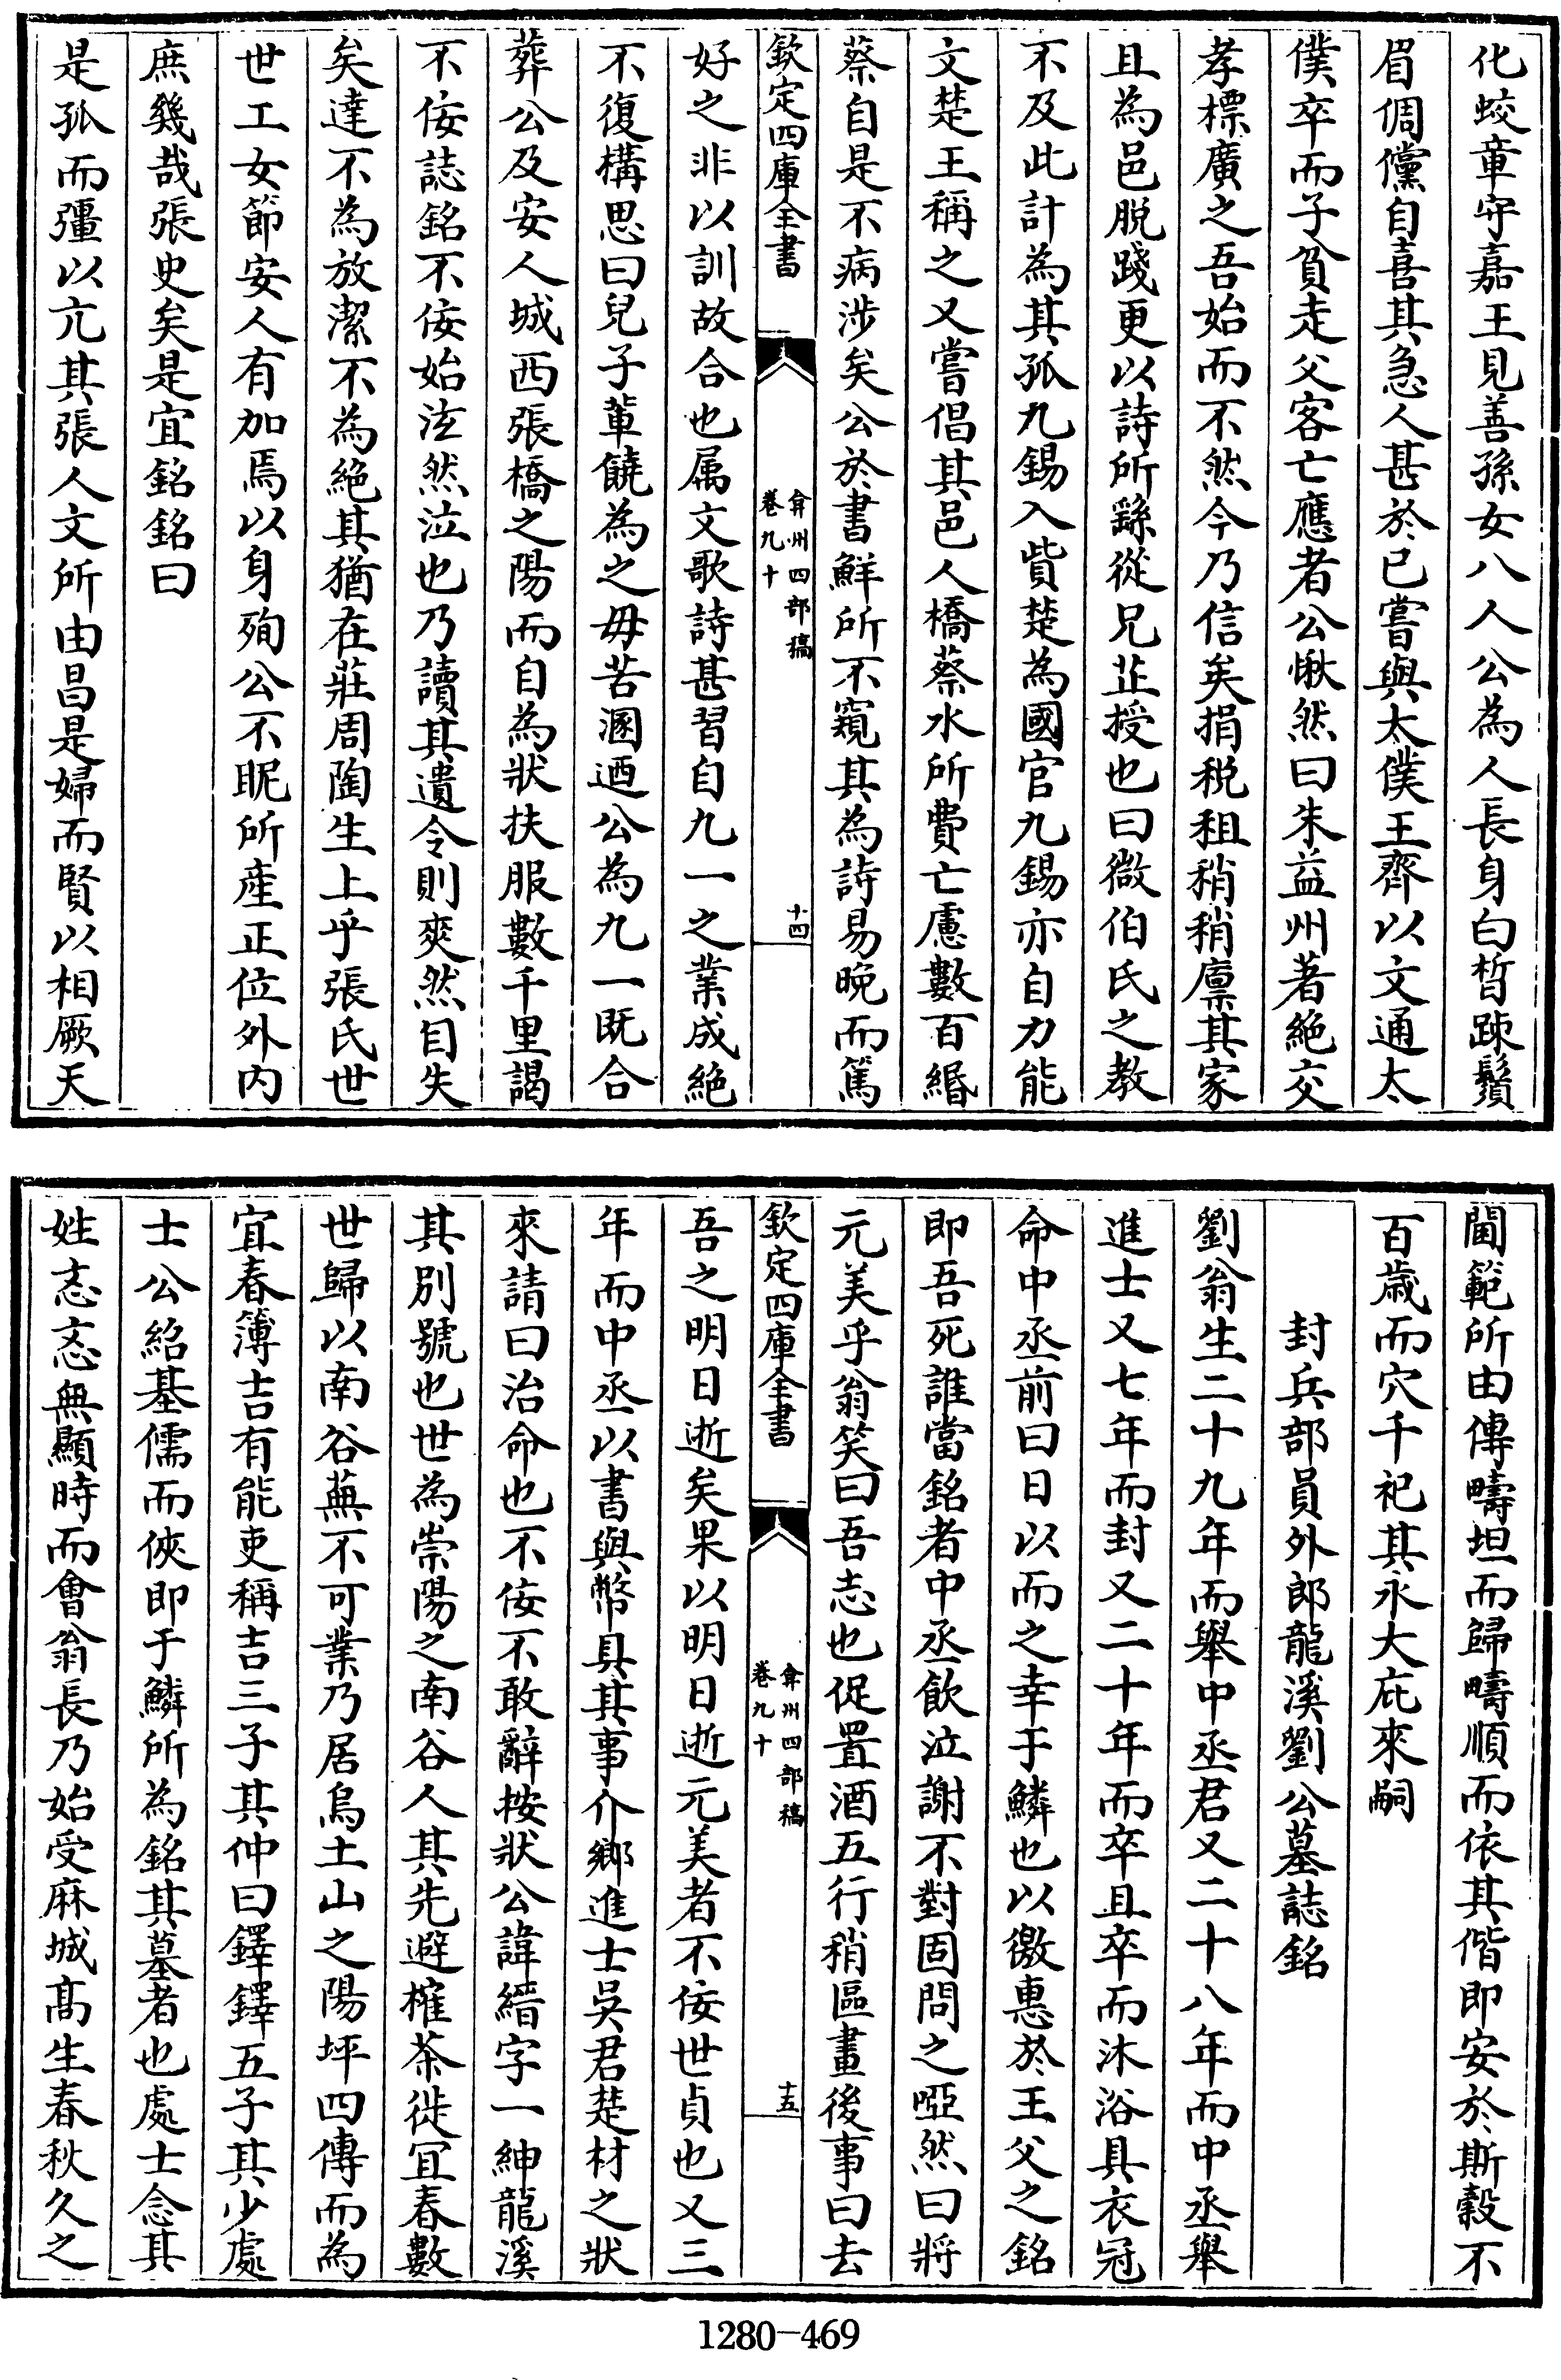 化蛟章守嘉王見善孫女八人公為人長身白晳疎鬚
眉倜儻自喜其急人甚於已嘗與太僕王齊以文通太
僕卒而子貧走父客亡應者公愀然曰朱益州著絶交
孝標廣之吾始而不然今乃信矣捐税租稍稍廪其家
且為邑脱踐更以詩所繇從兄芷授也曰微伯氏之教
不及此計為其孤九錫入貲楚為國官九錫亦自力能
文楚王稱之又嘗倡其邑人橋蔡水所費亡慮數百緡
蔡自是不病涉矣公於書鮮所不窺其為詩易晩而篤
欽定四庫全書
弇州四部稿
卷九十
十四
好之非以訓故合也属文歌詩甚習自九一之業成絶
不復構思曰兒子輩饒為之毋苦溷迺公為九一既合
葬公及安人城西張橋之陽而自為狀扶服數千里謁
不佞誌銘不佞始泫然泣也乃讀其遺令則爽然自失
矣達不為放潔不為絶其猶在莊周陶生上乎張氏世
世工女節安人有加焉以身殉公不眤所産正位外内
庶幾哉張史矣是宜銘銘曰
是孤而彊以亢其張人文所由昌是婦而賢以相厥天
閫範所由傳疇坦而歸疇順而依其偕即安於斯穀不
百歳而穴千祀其永大庇來嗣
封兵部員外郎龍溪劉公墓誌銘
劉翁生二十九年而舉中丞君又二十八年而中丞舉
進士又七年而封又二十年而卒且卒而沐浴具衣冠
命中丞前曰日以而之幸于鱗也以徼惠於王父之銘
即吾死誰當銘者中丞飲泣謝不對固問之啞然曰將
元美乎翁笑曰吾志也促置酒五行稍區畫後事曰去
欽定四庫全書
弇州四部稿
卷九十
十五
吾之明日逝矣果以明日逝元美者不佞世貞也又三
年而中丞以書與幣具其事介鄉進士吳君楚材之狀
來請曰治命也不佞不敢辭按狀公諱縉字一紳龍溪
其別號也世為崇陽之南谷人其先避榷茶徙宜春數
世歸以南谷蕪不可業乃居烏土山之陽坪四傳而為
宜春簿吉有能吏稱吉三子其仲曰鐸鐸五子其少處
士公紹基儒而俠即于鱗所為銘其墓者也處士念其
姓忞忞無顯時而會翁長乃始受麻城髙生春秋久之
1280-469